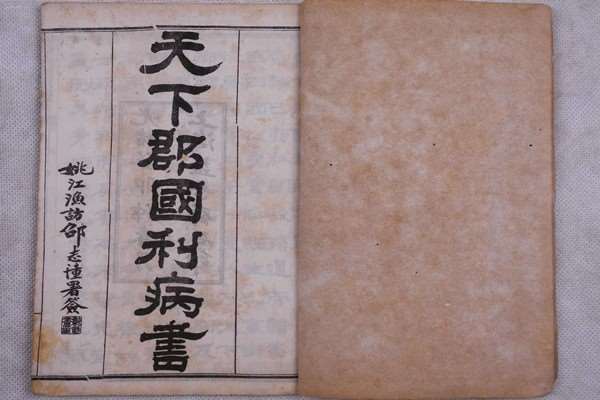 天下郡國利病書
姚江漁訪邵志憧署簽